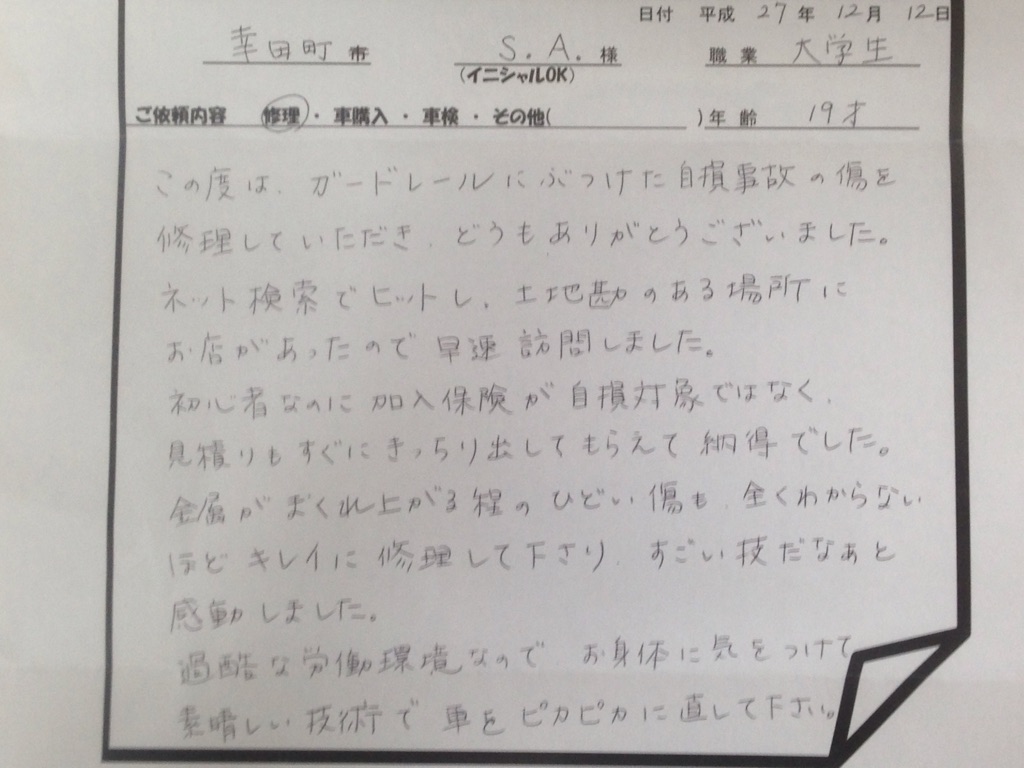 日付 平成 27年 12月 12日
幸田町 市 S.A. 様 職業 大学生
(イニシャルOK)
ご依頼内容 修理・車購入・車検・その他( )年齢 19才
この度は、ガードレールにぶつけた自損事故の傷を
修理していただき、どうもありがとうございました。
ネット検索でヒットし、土地勘のある場所に
お店があったので早速訪問しました。
初心者なのに加入保険が自損対象ではなく、
見積りもすぐにきっちり出してもらえて納得でした。
金属がまくれ上がる程のひどい傷も、全くわからない
ほどキレイに修理して下さり、すごい技だなぁと
感動しました。
過酷な労働環境なので お身体に気をつけて
素晴しい技術で車をピカピカに直して下さい。